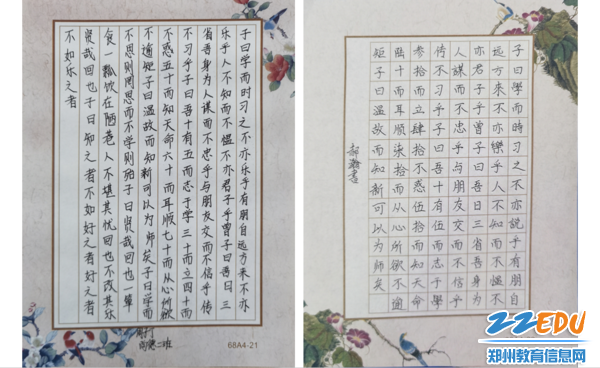 子曰学而时习之不亦乐乎有朋自远方来不亦
乐乎人不知而不愠不亦君子乎曾子曰吾日三
省吾身为人谋而不忠乎与朋友交而不信乎传
不习乎子曰吾十有五而志于学三十而立四十而
不惑五十而知天命六十而耳顺七十而从心所欲
不逾矩子曰温故而知新可以为师矣子曰学而
不思则罔思而不学则殆子曰贤哉回也一箪
食一瓢饮在陋巷人不堪其忧回也不改其乐
贤哉回也子曰知之者不如好之者好之者
不如乐之者
二班
68A4-21
子曰學而時习之不亦説乎有朋自
远方來不亦樂乎人不知而不愠不
亦君子乎曾子曰吾日三省吾身为
人謀而不忠乎与朋友交而不信乎
传不习乎子曰吾十有伍而志于學
叁拾而立肆拾不惑伍拾而知天命
陆十而耳顺柒拾而从心所欲不逾
矩子曰温故而知新可以为師矣
ZZEDU
郑州教育信息网